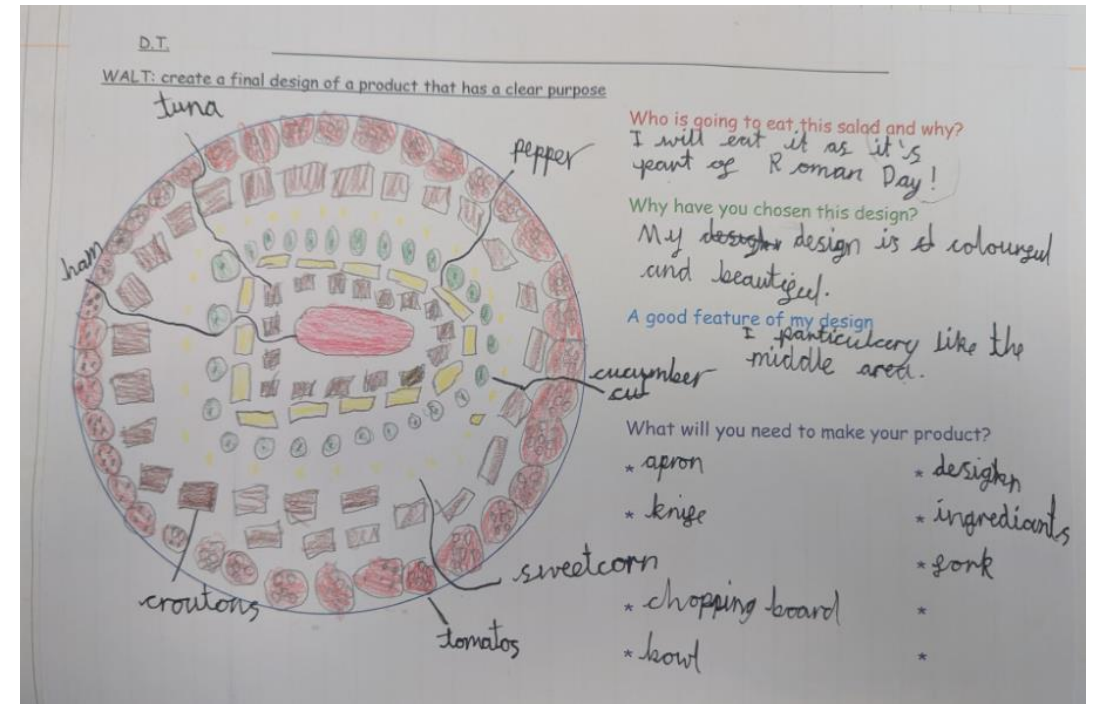 D.T.
WALT: create a final design of a product that has a clear purpose
tuna
pepper
ham
cucumber
cut
sweetcorn
croutons
tomatos
Who is going to eat this salad and why?
I will eat it as it's
part of Roman Day!
Why have you chosen this design?
My design is colourful
and beautiful.
A good feature of my design
I particulary like the
middle area.
What will you need to make your product?
* apron
* knife
* chopping board
* bowl
* design
* ingrediants
* fork
*
*